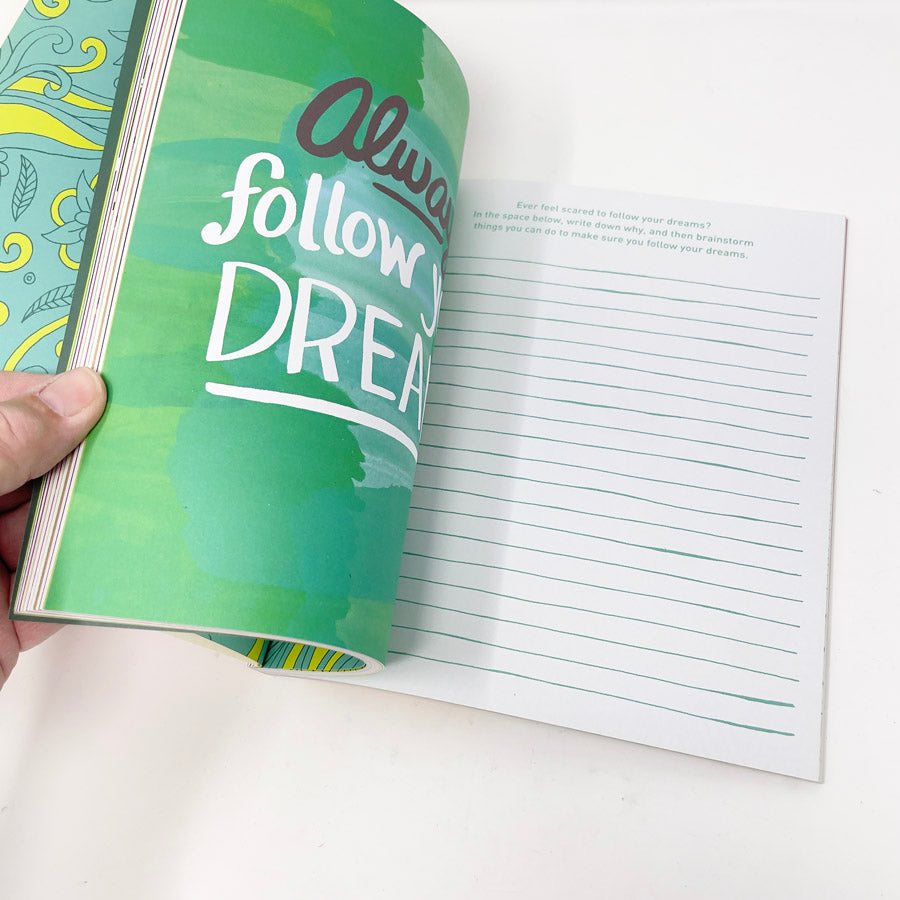 Alway
follow y
DREA
Ever feel scared to follow your dreams?
In the space below, write down why, and then brainstorm
things you can do to make sure you follow your dreams.